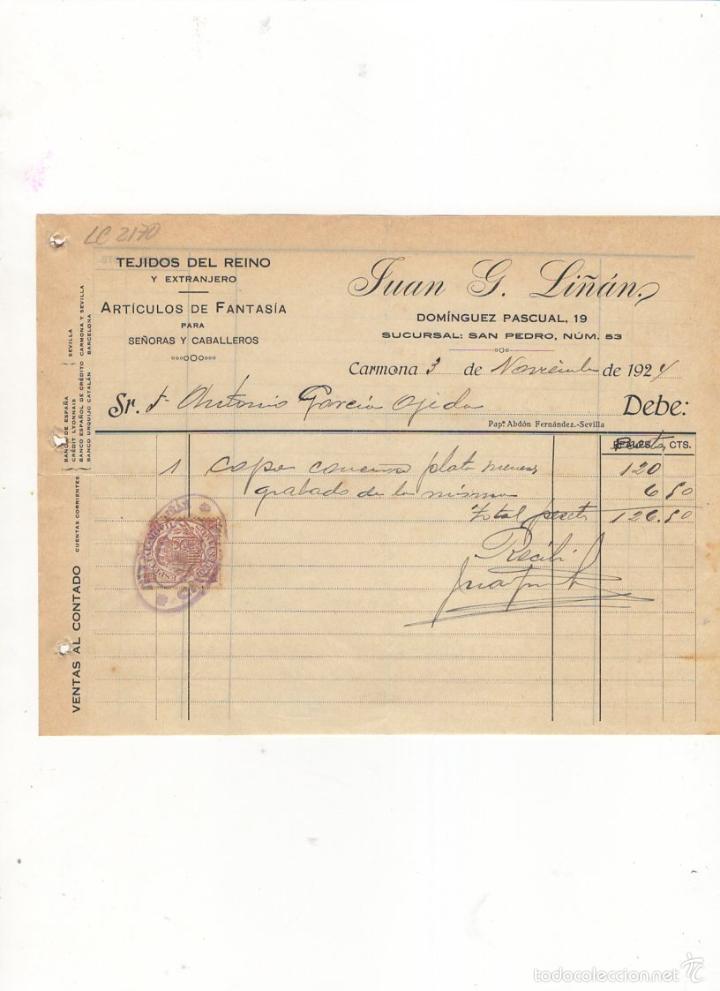 LC 2170
TEJIDOS DEL REINO
Y EXTRANJERO
ARTÍCULOS DE FANTASÍA
PARA
SEÑORAS Y CABALLEROS
Juan G. Liñán
DOMÍNGUEZ PASCUAL, 19
SUCURSAL: SAN PEDRO, NÚM. 53
Carmona 3 de Noviembre de 1924
Sr. D. Antonio García Ojeda Debe:
Pap.ª Abdón Fernández.-Sevilla
CTS.
1 copa plata 120
grabado de la misma 6 50
Total peset 126.50
Recibí
VENTAS AL CONTADO
CUENTAS CORRIENTES
BANCO DE ESPAÑA
CRÉDIT LYONNAIS
SEVILLA
BANCO ESPAÑOL DE CRÉDITO CARMONA Y SEVILLA
BANCO URQUIJO CATALÁN BARCELONA
todocoleccion.net